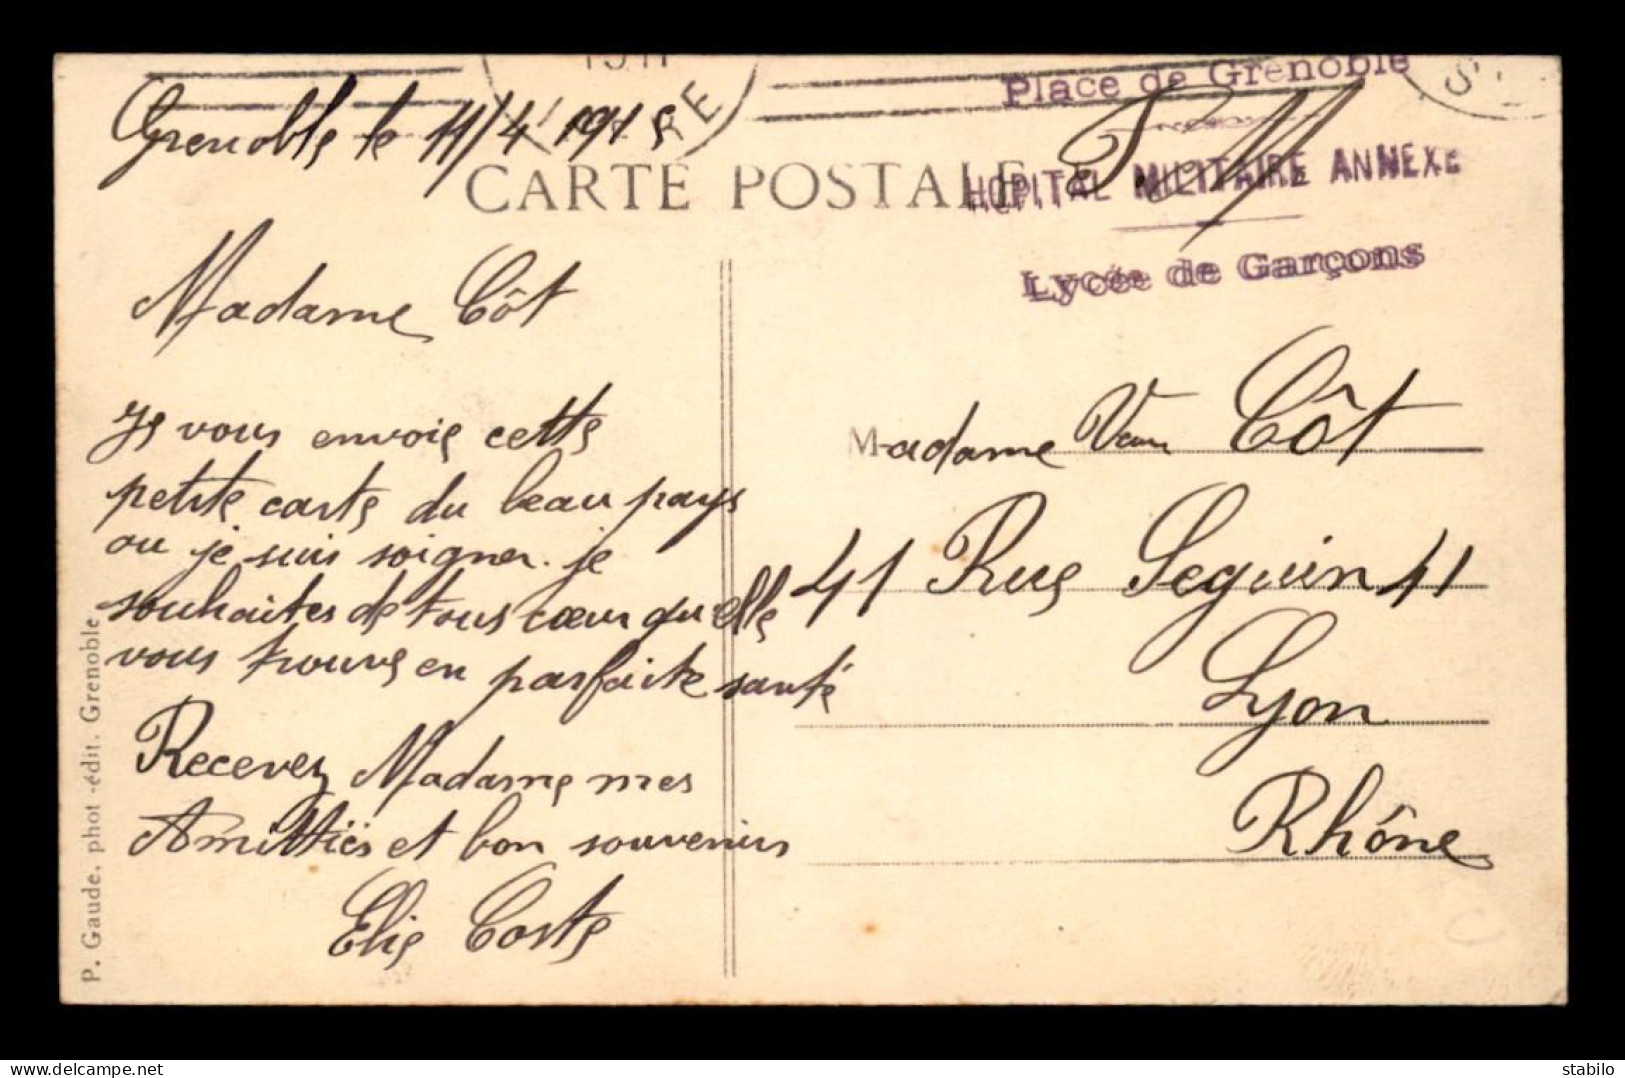 Place de Grenoble
Grenoble le 11/4 1915
CARTE POSTALE
F.M
HOPITAL MILITAIRE ANNEXE
Lycée de Garçons
Madame Côt
Je vous envoie cette
petite carte du beau pays
ou je suis soigner. je
souhaites de tous cœur qu'elle
vous trouve en parfaite santé
Recevez Madame mes
Amittiés et bon souvenirs
Elie Coste
Madame Côt
41 Rue Seguin 41
Lyon
Rhône
P. Gaude, phot-édit. Grenoble
delcampe.net
stabilo